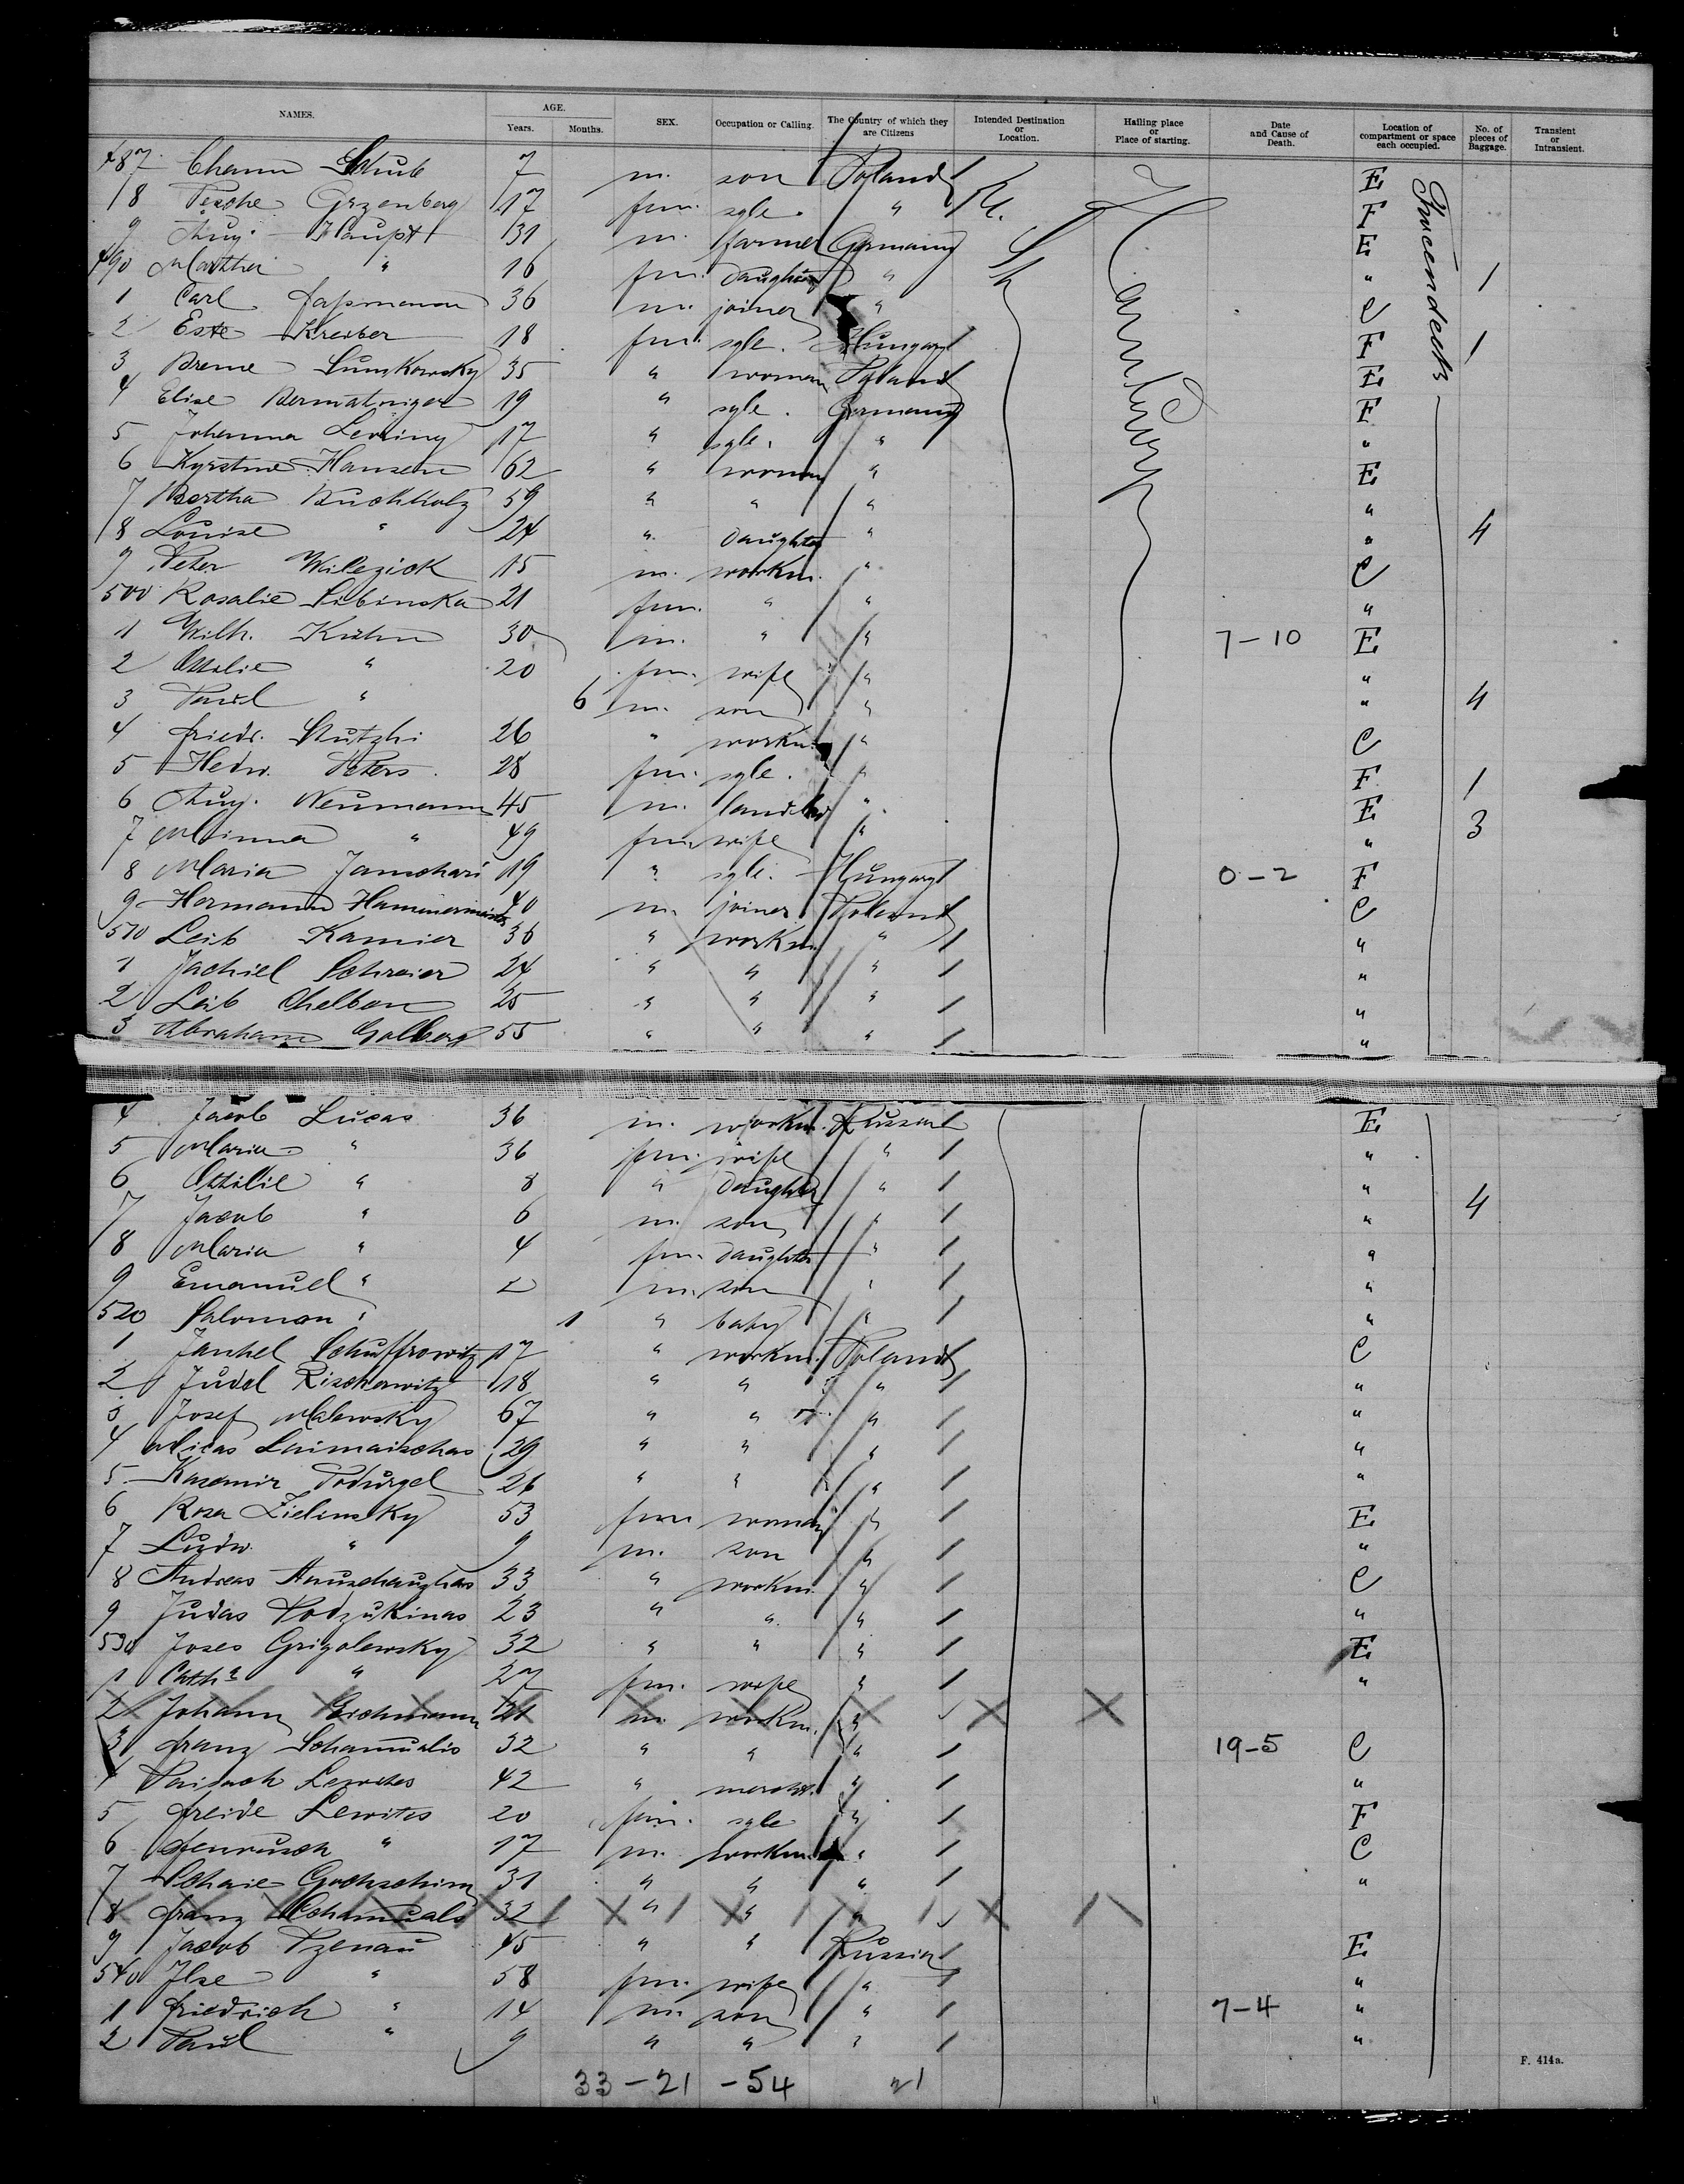 NAMES. AGE. Years. Months. SEX. Occupation or Calling. The Country of which they are Citizens Intended Destination or Location. Hailing place or Place of starting. Date and Cause of Death. Location of compartment or space each occupied. No. of pieces of Baggage. Transient or Intransient.
487 Chann Schub 7 m. son Poland E
8 Pesche Grzenberg 17 fm. sgle. " F
9 Aug. Haupt 31 m. farmer Germany E
490 Martha " 16 fm. daughter " " 1
1 Carl 36 m. joiner " C
2 Este Kreiber 18 fm. sgle. Hungary F 1
3 Breme Lunskowsky 35 " woman Poland E
4 Elise Bermatinger 19 " sgle. Germany F
5 Johanna Lersing 17 " sgle. " "
6 Kyrstine Hansen 62 " woman " E
7 Bertha Buchholz 59 " " " "
8 Louise " 24 " daughter " " 4
9 Peter Wilezick 15 m. workm. " C
500 Rosalie Libinska 21 fm. " " "
1 Wilh. Kühn 30 m. " " 7-10 E
2 Ottilie " 20 fm. wife " "
3 Paul " 6 m. son " " 4
4 Friedr. Stutzki 26 " workm. " C
5 Hedw. Peters 28 fm. sgle. " F 1
6 Aug. Neumann 45 m. " E
7 Minna " 49 fm. wife " " 3
8 Maria Jamschari 19 " sgle. Hungary 0-2 F
9 Hermann Hammermeister 40 m. joiner Poland C
510 Leib Kamier 36 " workm. " "
1 Jachiel Schreier 24 " " " "
2 Leib Chelbon 25 " " " "
3 Abraham Golberg 55 " " " "
Hamburg
Zwischendeck
4 Jacob Lucas 36 m. workm. Russia E
5 Maria " 36 fm. wife " "
6 Ottilie " 8 " daughter " " 4
7 Jacob " 6 m. son " "
8 Maria " 4 fm. daughter " "
9 Emanuel " 2 m. son " "
520 Salomon " 1 " baby " "
1 Jankel Schuffrowitz 17 " workm. Poland C
2 Judel Rischerwitz 18 " " " "
3 Josef Malewsky 67 " " " "
4 Micas Laimaischas 29 " " " "
5 Kasemir Podurgel 26 " " " "
6 Rosa Zielinsky 53 fm. woman " E
7 Ludw. " 9 m. son " "
8 Andreas Anuschaughas 33 " workm. " C
9 Judas Podzukinas 23 " " " "
530 Joses Grigolewsky 32 " " " E
1 Cath. " 27 fm. wife " "
2 Johann Eichmann 21 m. workm. "
3 Franz Schamualis 32 " " " 19-5 C
4 Paisach Lewites 42 " mercht. " "
5 Freide Lewites 20 fm. sgle " F
6 " 17 m. workm. " C
7 Schaie Gochschim 31 " " " "
8 Franz Schamuals 32 " " "
9 Jacob Pzenau 45 " " Russia E
540 Ilse " 58 fm. wife " "
1 Friedrich " 14 m. son " 7-4 "
2 Paul " 9 " " " "
33-21 -54 21
F. 414a.